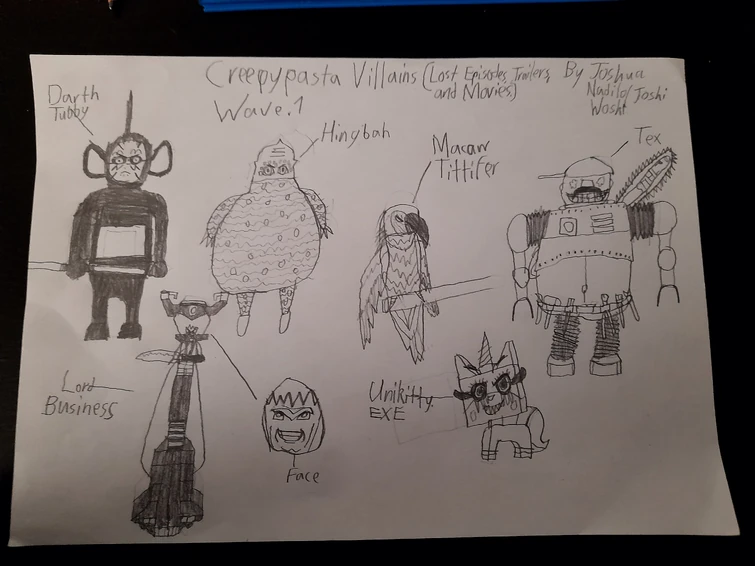 Creepypasta Villains (Lost Episodes, Trailers, By Joshua
and Movies) Nadilo/Joshi
Wave.1 Wosht
Darth
Tubby
Hinybah
Macaw
Tittifer
Tex
Lord
Business
Face
Unikitty.
EXE